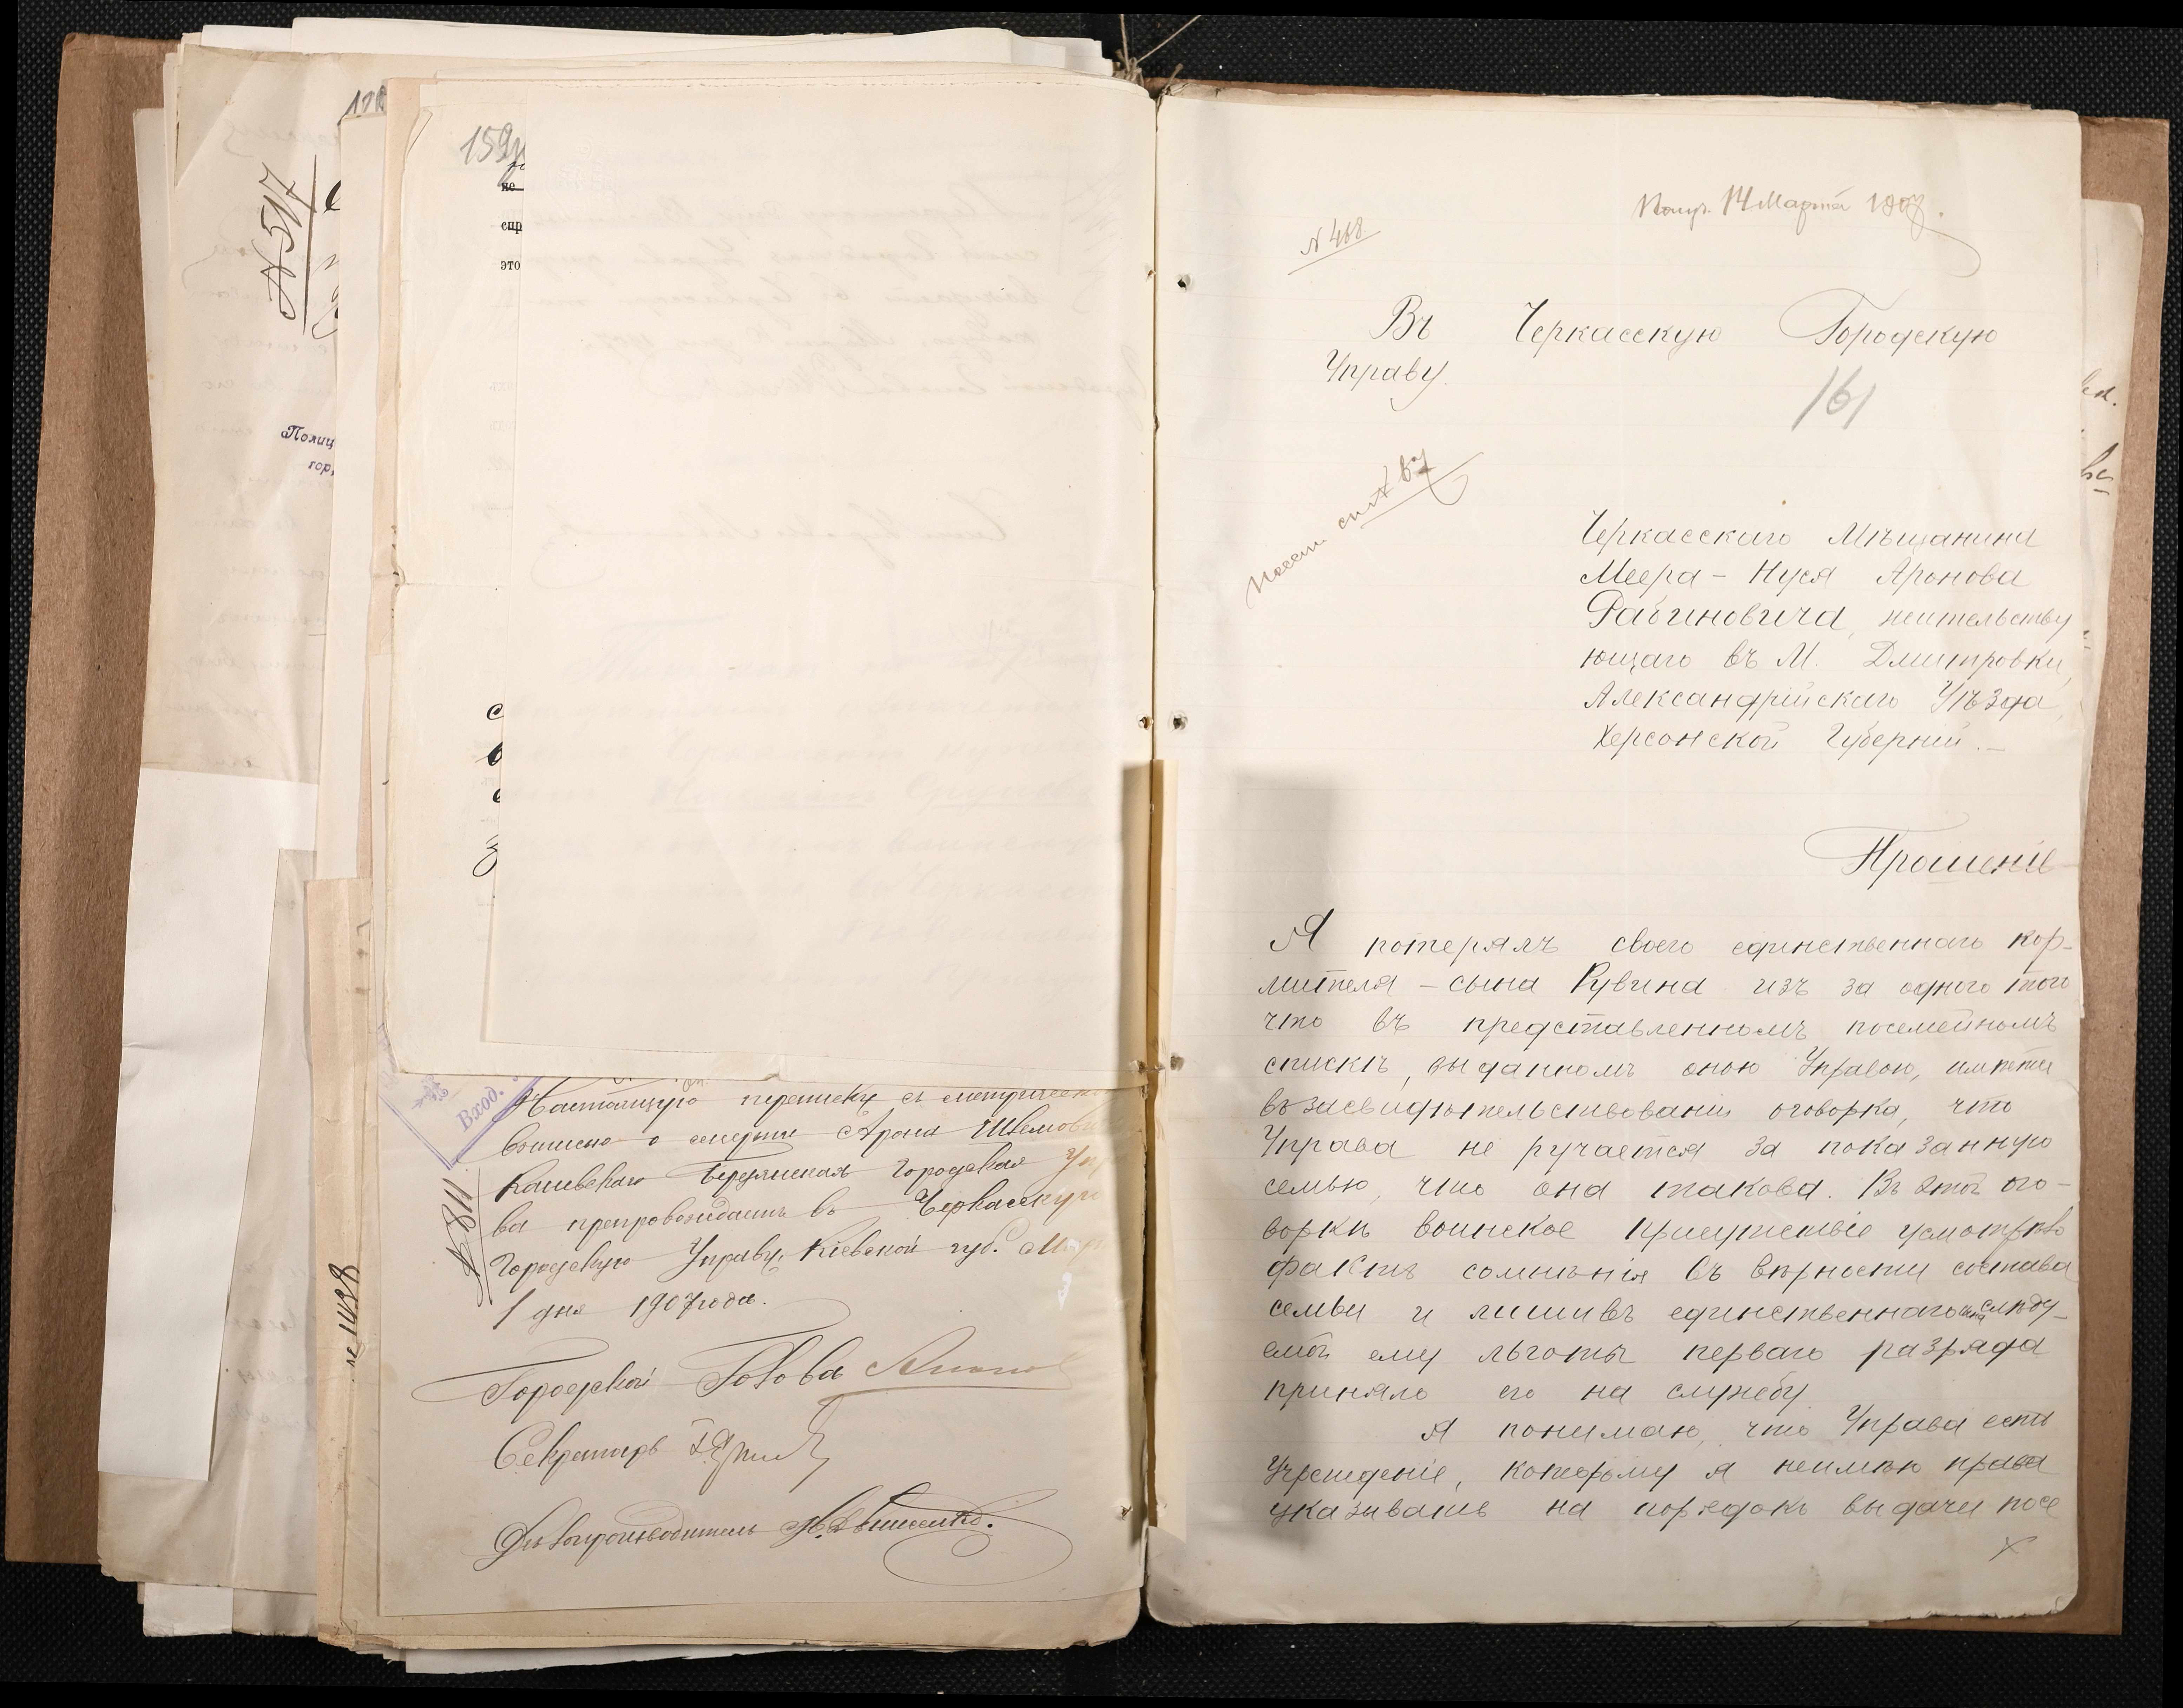 159
не
спр
это
№ 517
Полиц
гор.
Вход.
Настоящую переписку съ метрическо
о смерти Арона
Каневскаго Бердянская Городская Уп
ва препровождаетъ въ Черкасскую
Городскую Управу, Кіевской губ. Мар
1 дня 1907 года.
№ 811
№ 1488
Городской Голова
Секретарь
Дѣлопроизводитель
Получ. 14 Марта 1907.
№ 468
Въ Черкасскую Городскую
Управу.
161
Черкасскаго Мѣщанина
Меера-Нуся Аронова
Рабиновича, жительству
ющаго въ М. Дмитровки,
Александрійскаго Уѣзда,
Херсонской Губерніи.
Прошеніе
Я потерялъ своего единственнаго кор-
мителя - сына Рувина изъ за одного того
что въ представленномъ посемейномъ
спискѣ, выданномъ оною Управою, имѣется
въ засвидѣтельствованіи оговорка, что
Управа не ручается за показанную
семью, что она такова. Въ этой ого-
воркѣ воинское присутствіе усмотрѣло
фактъ сомнѣнія въ вѣрности состава
семьи и лишивъ единственнаго сына слѣду-
емой ему льготы перваго разряда
приняло его на службу.
Я понимаю, что Управа есть
Учрежденіе, которому я неимѣю права
указывать на порядокъ выдачи посе